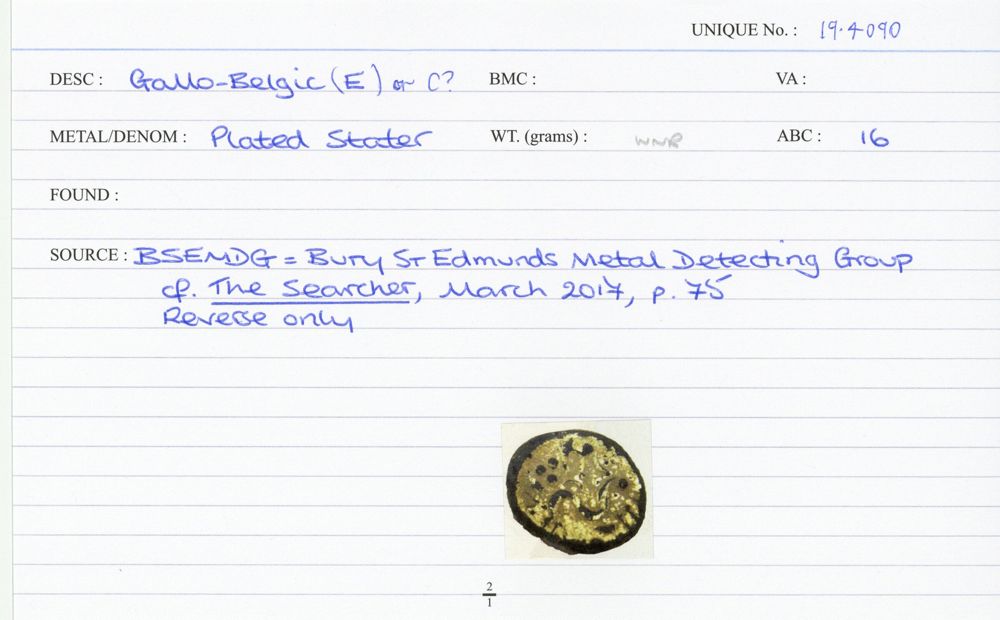 UNIQUE No. : 19.4090
DESC : Gallo-Belgic (E) or C? BMC : VA :
METAL/DENOM : Plated Stater WT. (grams) : WNR ABC : 16
FOUND :
SOURCE : BSEMDG = Bury St Edmunds Metal Detecting Group
cf. The Searcher, March 2017, p. 75
Reverse only
2
1